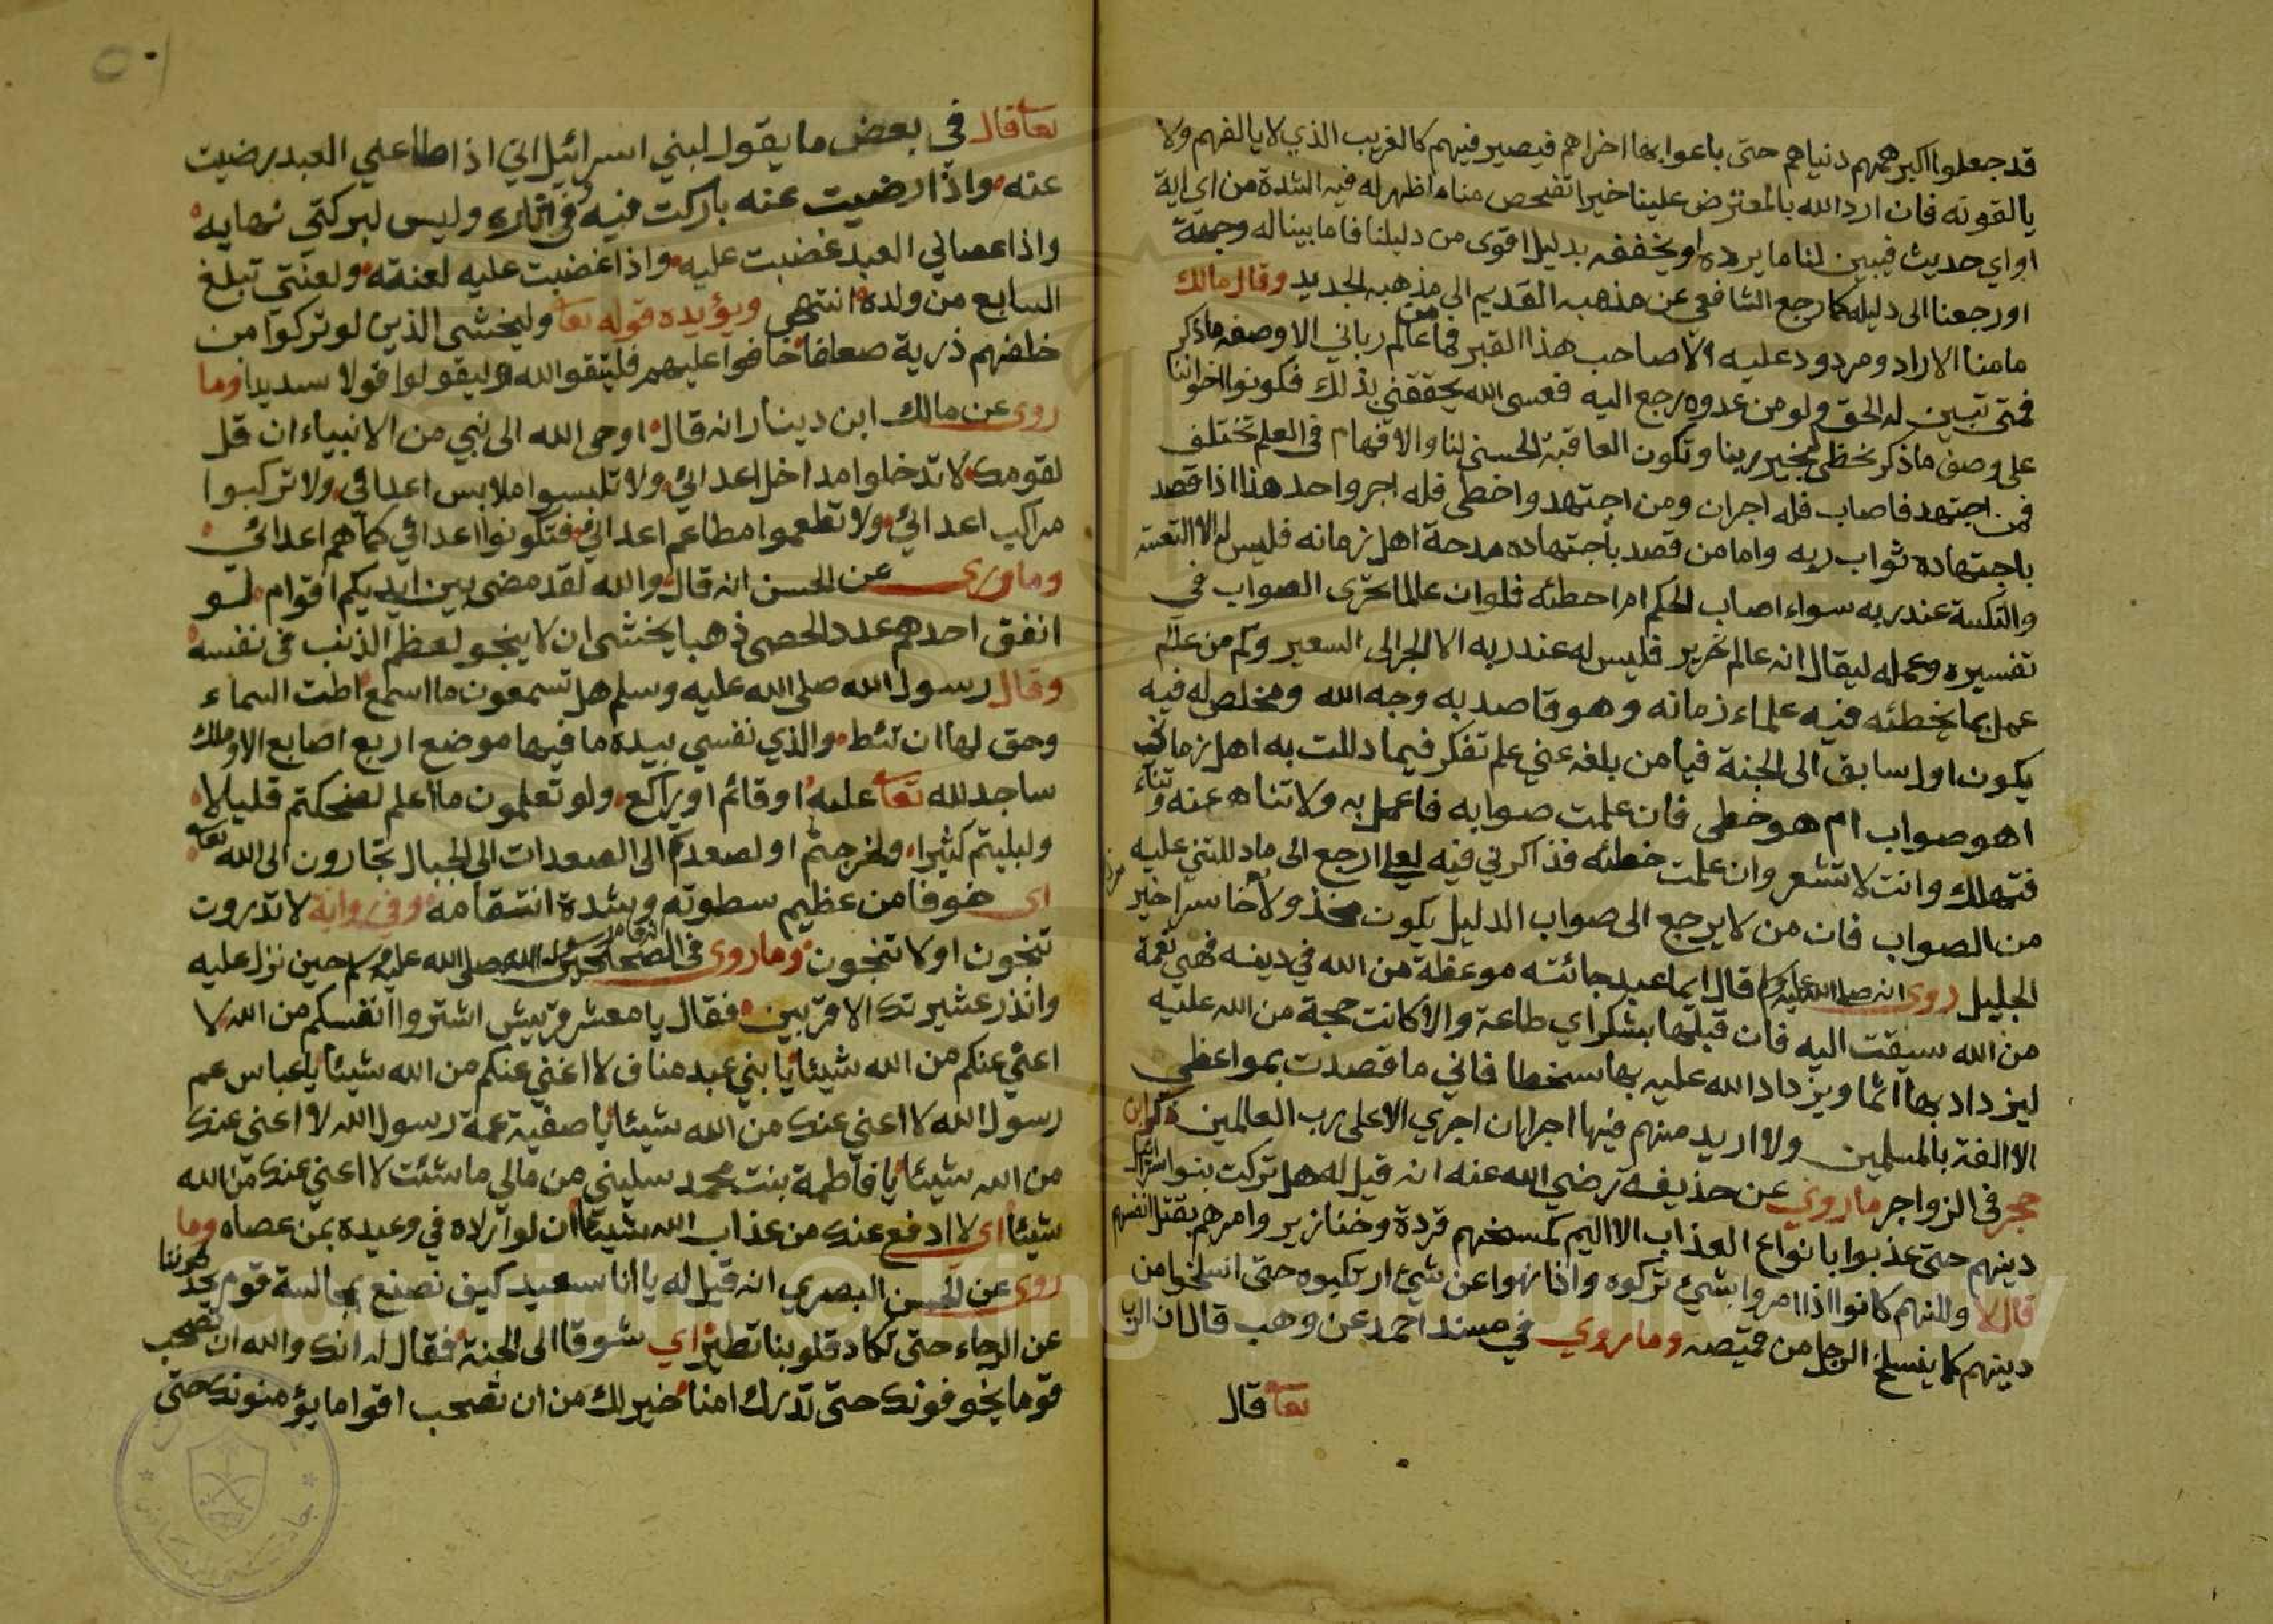 قد جعلوا اكبر همهم دنياهم حتى باعوا بها اخراهم فيصير فيهم كالغريب الذي لا يالفهم ولا
يالفونه فان اراد الله بالمعترض علينا خيرا تفحص منا ما اظهر له فيه الشدة من اي اية
او اي حديث فيبين لنا ما يرده او يخففه بدليل اقوى من دليلنا فاما بينا له وجهة
او رجعنا الى دليله كما رجع الشافعي عن مذهبه القديم الى مذهبه الجديد وقال مالك
ما منا الا راد ومردود عليه الا صاحب هذا القبر فما من عالم رباني الا وصفه ما ذكر
فمتى تبين له الحق ولو من عدوه رجع اليه فعسى الله يحققني بذلك فكونوا اخواننا
على وصف ما ذكر نحظى بخير ربنا وتكون العاقبة الحسنى لنا والافهام في العلم تختلف
فمن اجتهد فاصاب فله اجران ومن اجتهد واخطى فله اجر واحد هذا اذا قصد
باجتهاده ثواب ربه واما من قصد باجتهاده مدحة اهل زمانه فليس له الا التعسة
والنكسة عند ربه سواء اصاب الحكم ام اخطئه فلو ان عالما تحرى الصواب في
تفسيره وعمله ليقال انه عالم نحرير فليس له عند ربه الا الجر الى السعير وكم من عالم
عمل بما يخطئه فيه علماء زمانه وهو قاصد به وجه الله ومخلص له فيه
يكون اول سابق الى الجنة فيا من بلغه عني علم تفكر فيما دللت به اهل زماني
اهو صواب ام هو خطى فان علمت صوابه فاعمل به ولا تناه عنه وتناء
فتهلك وانت لا تشعر وان علمت خطئه فذاكرني فيه لعلي ارجع الى ما دللتني عليه
من الصواب فان من لا يرجع الى صواب الدليل يكون مخذولا خاسرا خير
الجليل روى انه صلى الله عليه وسلم قال ايما عبد جائته موعظة من الله في دينه فهي نعمة
من الله سيقت اليه فان قبلها بشكر اي طاعة والا كانت حجة من الله عليه
ليزداد بها اثما ويزداد الله عليه بها سخطا فاني ما قصدت بمواعظي
الا الفة بالمسلمين ولا اريد منهم فيها اجرا ان اجري الا على رب العالمين ذكر ابن
حجر في الزواجر ما روي عن حذيفة رضي الله عنه انه قيل له هل تركت بنوا اسرائيل
دينهم حتى عذبوا بانواع العذاب الاليم كمسخهم قردة وخنازير وامرهم بقتل انفسهم
قال لا ولكنهم كانوا اذا امروا بشئ تركوه واذا نهوا عن شئ ارتكبوه حتى انسلخوا من
دينهم كما ينسلخ الرجل من قميصه وما روي في مسند احمد عن وهب قال ان الرب
تعا قال
٥٠١
تعا قال في بعض ما يقول لبني اسرائيل اني اذا طاعني العبد رضيت
عنه واذا رضيت عنه باركت فيه وفي اثاره وليس لبركتي نهاية
واذا عصاني العبد غضبت عليه واذا غضبت عليه لعنته ولعنتي تبلغ
السابع من ولده انتهى ويؤيده قوله تعا وليخشى الذين لو تركوا من
خلفهم ذرية ضعافا خافوا عليهم فليتقوا الله وليقولوا قولا سديدا وما
روى عن مالك ابن دينار انه قال اوحى الله الى نبي من الانبياء ان قل
لقومك لا تدخلوا مداخل اعدائي ولا تلبسوا ملابس اعدائي ولا تركبوا
مراكب اعدائي ولا تطعموا مطاعم اعدائي فتكونوا اعدائي كما هم اعدائي
وما روى عن الحسن انه قال والله لقد مضى بين ايديكم اقوام لو
انفق احدهم عدد الحصى ذهبا يخشى ان لا ينجو لعظم الذنب في نفسه
وقال رسول الله صلى الله عليه وسلم هل تسمعون ما اسمع اطت السماء
وحق لها ان تئط والذي نفسي بيده ما فيها موضع اربع اصابع الا وملك
ساجد لله تعا عليه او قائم او راكع ولو تعلمون ما اعلم لضحكتم قليلا
ولبكيتم كثيرا ولخرجتم او لصعدتم الى الصعدات الى الجبال تجارون الى الله تعا
اي خوفا من عظيم سطوته وشدة انتقامه وفي رواية لا تدرون
تنجون او لا تنجون وما روى في الصحيحين انه قام رسول الله صلى الله عليه وسلم حين نزل عليه
وانذر عشيرتك الاقربين فقال يا معشر قريش اشتروا انفسكم من الله لا
اغني عنكم من الله شيئا يا بني عبد مناف لا اغني عنكم من الله شيئا يا عباس عم
رسول الله لا اغني عنك من الله شيئا يا صفية عمة رسول الله لا اغني عنك
من الله شيئا يا فاطمة بنت محمد سليني من مالي ما شئت لا اغني عنك من الله
شيئا اي لا ادفع عنك من عذاب الله شيئا ان لو اراده في وعيده بمن عصاه وما
روى عن الحسن البصري انه قيل له يا ابا سعيد كيف نصنع بمجالسة قوم يحدثوننا
عن الرجاء حتى تكاد قلوبنا تطير اي شوقا الى الجنة فقال له انك والله ان تصحب
قوما يخوفونك حتى تدرك امنا خير لك من ان تصحب اقواما يؤمنونك حتى